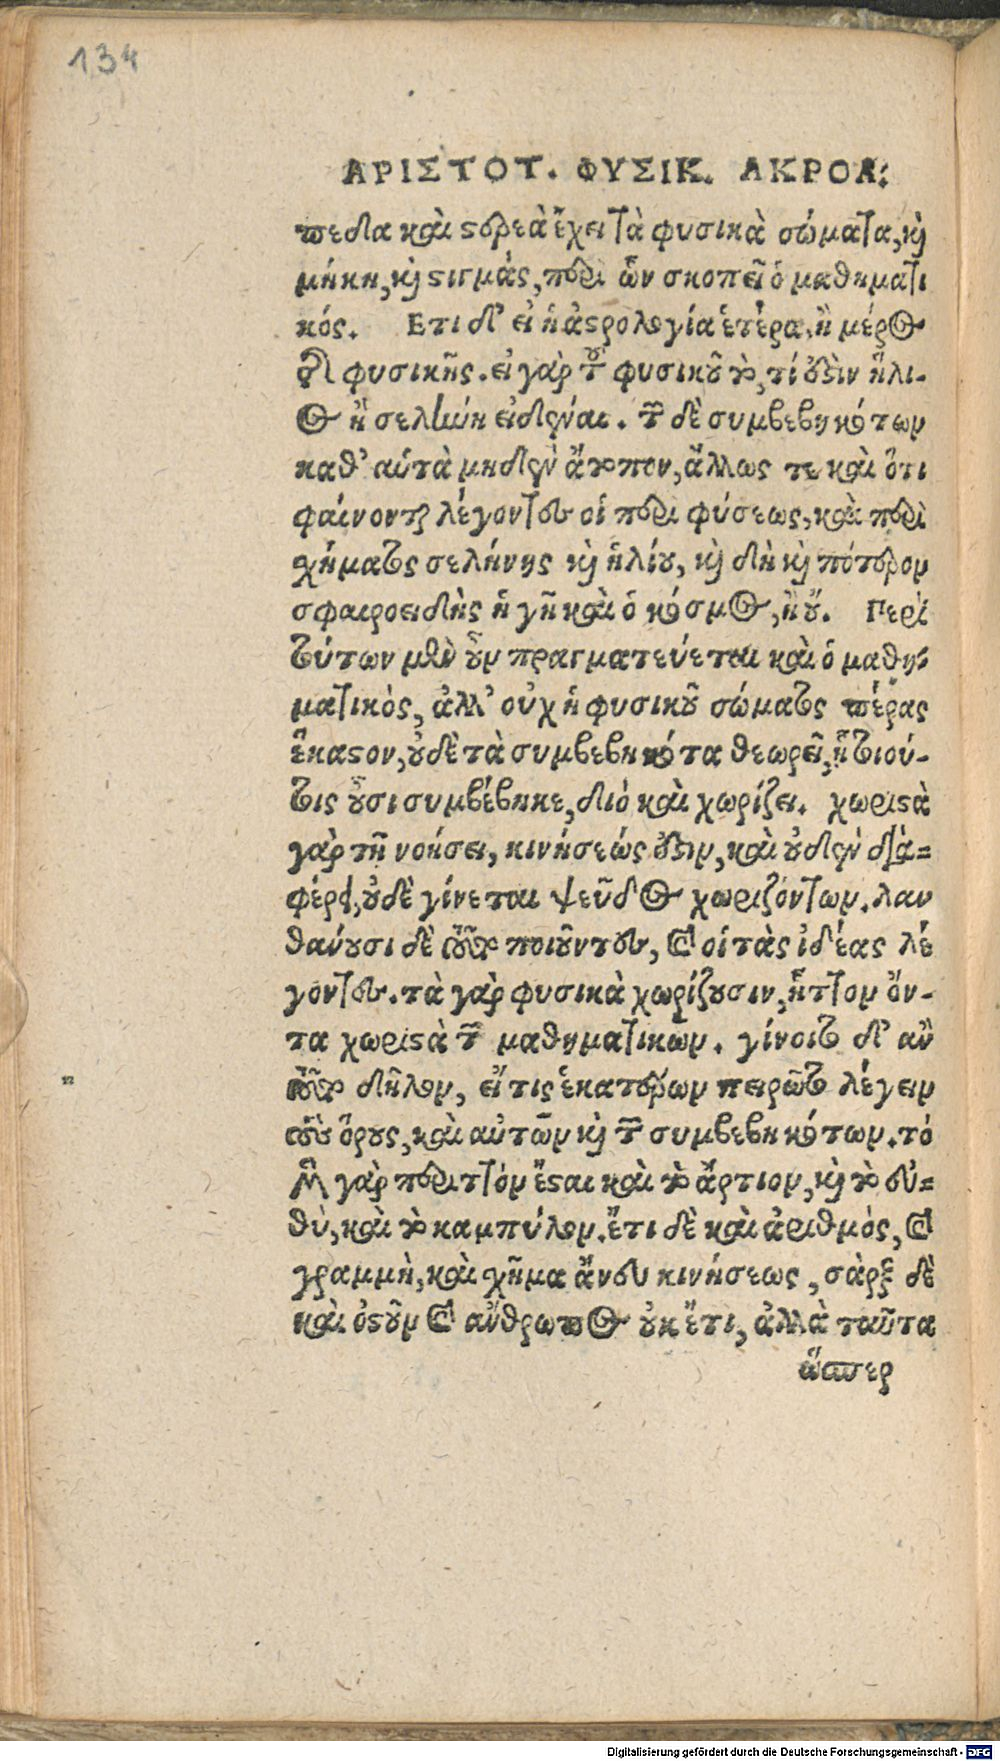 134
ΑΡΙΣΤΟΤ. ΦΥΣΙΚ. ΑΚΡΟΑ:
πεδα καὶ στερεὰ ἔχει τὰ φυσικὰ σώματα, καὶ
μήκη, καὶ στιγμὰς, περὶ ὧν σκοπεῖ ὁ μαθηματι
κός. Ετι δ' εἰ ἡ ἀστρολογία ἑτέρα, ἢ μέρος
τῆς φυσικῆς. εἰ γὰρ τοῦ φυσικοῦ τὸ, τί ἐστιν ἥλι-
ος ἢ σελήνη εἰδέναι. τῶν δὲ συμβεβηκότων
καθ' αὑτὰ μηδὲν ἄτοπον, ἄλλως τε καὶ ὅτι
φαίνονται λέγοντες οἱ περὶ φύσεως, καὶ περὶ
σχήματος σελήνης καὶ ἡλίου, καὶ δὴ καὶ πότερον
σφαιροειδὴς ἡ γῆ καὶ ὁ κόσμος, ἢ οὔ. Περὶ
τούτων μὲν οὖν πραγματεύεται καὶ ὁ μαθη-
ματικὸς, ἀλλ' οὐχ ἡ φυσικοῦ σώματος πέρας
ἕκαστον, οὐδὲ τὰ συμβεβηκότα θεωρεῖ, ᾗ τοιού-
τοις οὖσι συμβέβηκε, διὸ καὶ χωρίζει. χωριστὰ
γὰρ τῇ νοήσει, κινήσεώς ἐστιν, καὶ οὐδὲν δια=
φέρει, οὐδὲ γίνεται ψεῦδος χωριζόντων. λαν
θάνουσι δὲ τοῦτο ποιοῦντες, καὶ οἱ τὰς ἰδέας λέ
γοντες. τὰ γὰρ φυσικὰ χωρίζουσιν, ἧττον ὄν-
τα χωριστὰ τῶν μαθηματικῶν. γίνοιτο δ' ἂν
τοῦτο δῆλον, εἴ τις ἑκατέρων πειρῷτο λέγειν
τοὺς ὅρους, καὶ αὐτῶν καὶ τῶν συμβεβηκότων. τὸ
μὲν γὰρ περιττὸν ἔσται καὶ τὸ ἄρτιον, καὶ τὸ εὐ=
θὺ, καὶ τὸ καμπύλον. ἔτι δὲ καὶ ἀριθμὸς, καὶ
γραμμὴ, καὶ σχῆμα ἄνευ κινήσεως, σὰρξ δὲ
καὶ ὀστοῦν καὶ ἄνθρωπος οὐκ ἔτι, ἀλλὰ ταῦτα
ὥσπερ
Digitalisierung gefördert durch die Deutsche Forschungsgemeinschaft - DFG